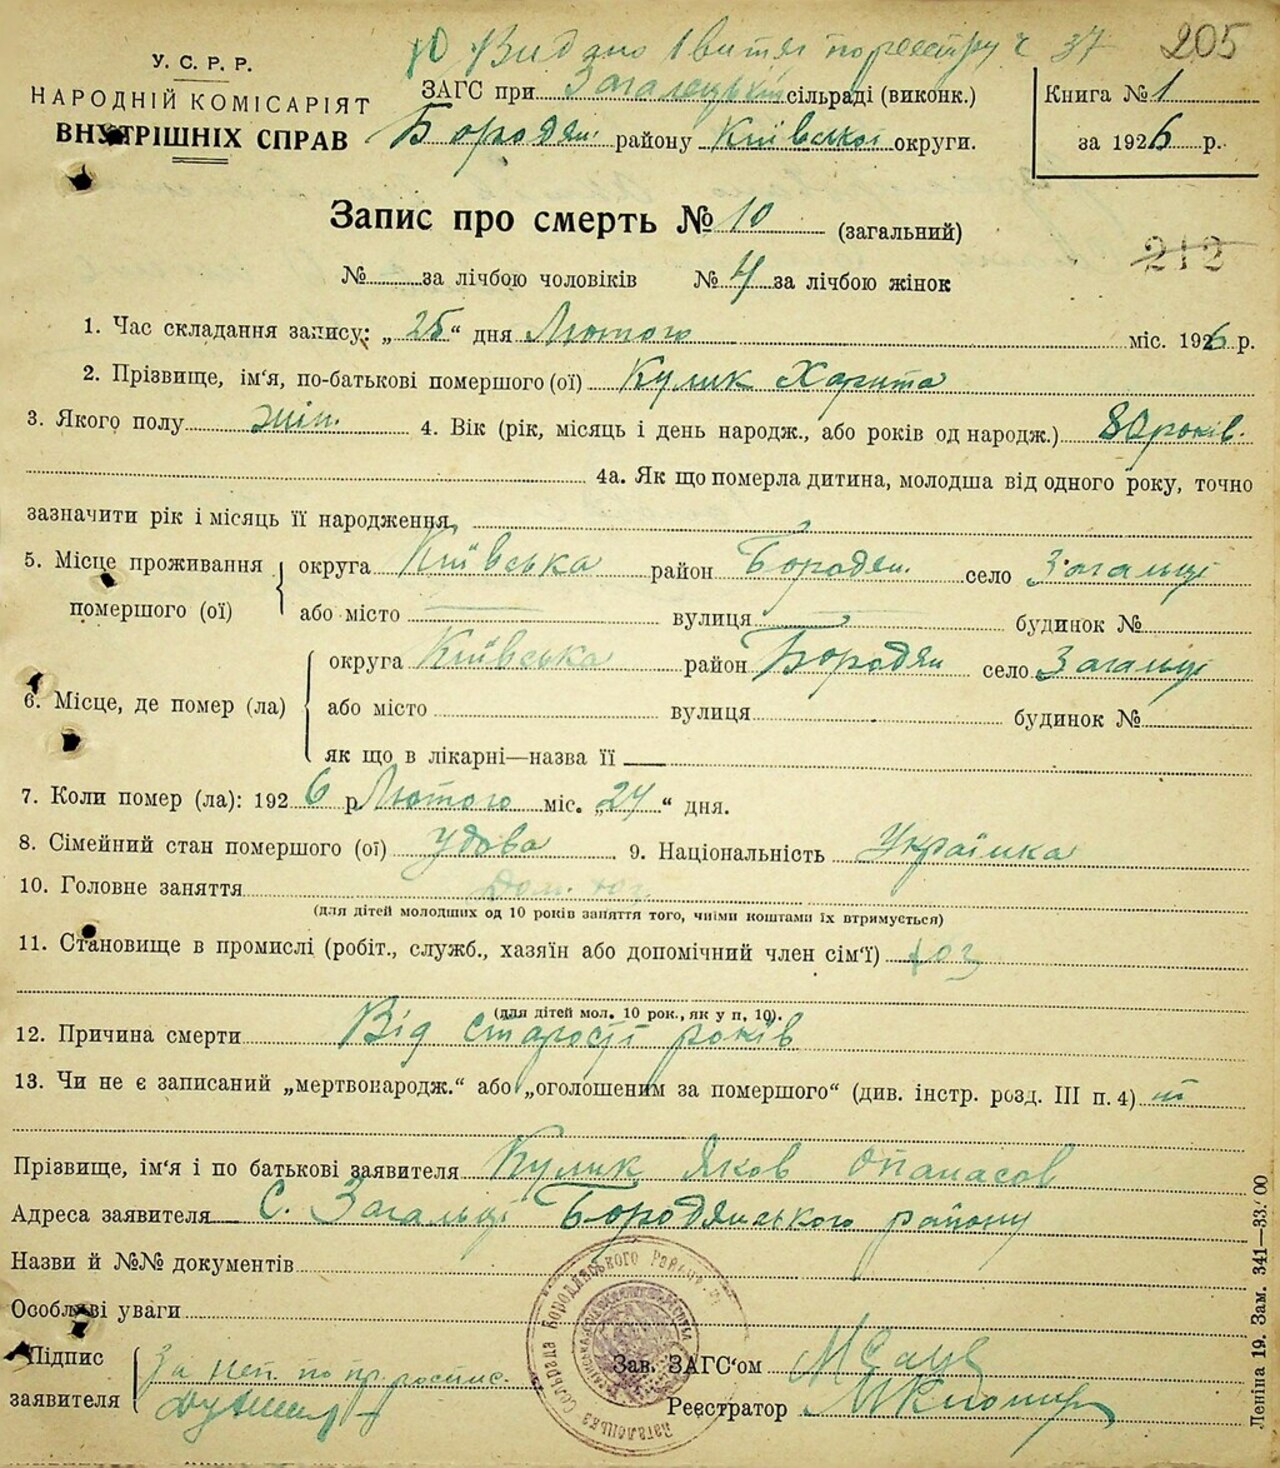 Видано 1 витяг по реєстру ч 37 205
У. С. Р. Р.
НАРОДНІЙ КОМІСАРІЯТ
ВНУТРІШНІХ СПРАВ
ЗАГС при Загалецькій сільраді (виконк.)
Бородян. району Київської округи.
Книга № 1
за 1926 р.
Запис про смерть № 10 (загальний)
212
№ за лічбою чоловіків № 4 за лічбою жінок
1. Час складання запису: „25“ дня Лютого міс. 1926 р.
2. Прізвище, ім'я, по-батькові помершого (ої) Кулик Харита
3. Якого полу жін. 4. Вік (рік, місяць і день народж., або років од народж.) 80 років.
4а. Як що померла дитина, молодша від одного року, точно
зазначити рік і місяць її народження
5. Місце проживання помершого (ої) округа Київська район Бородян. село Загальці
або місто вулиця будинок №
6. Місце, де помер (ла) округа Київська район Бородян село Загальці
або місто вулиця будинок №
як що в лікарні—назва її
7. Коли помер (ла): 1926 р Лютого міс. „24“ дня.
8. Сімейний стан помершого (ої) удова 9. Національність Українка
10. Головне заняття Дом. хоз.
(для дітей молодших од 10 років заняття того, чиїми коштами їх втримується)
11. Становище в промислі (робіт., служб., хазяїн або допомічний член сім‘ї) хоз
(для дітей мол. 10 рок., як у п. 10).
12. Причина смерти Від старості років
13. Чи не є записаний „мертвонародж.“ або „оголошеним за помершого“ (див. інстр. розд. III п. 4) ні
Прізвище, ім'я і по батькові заявителя Кулик Яков Опанасов
Адреса заявителя С. Загальці Бородянського району
Назви й №№ документів
Особливі уваги
Підпис заявителя За неп. по пр. роспис.
Зав. ЗАГС‘ом
Реєстратор
Загалецька Сільрада Бородянського Району
Леніна 19. Зам. 341—33.00